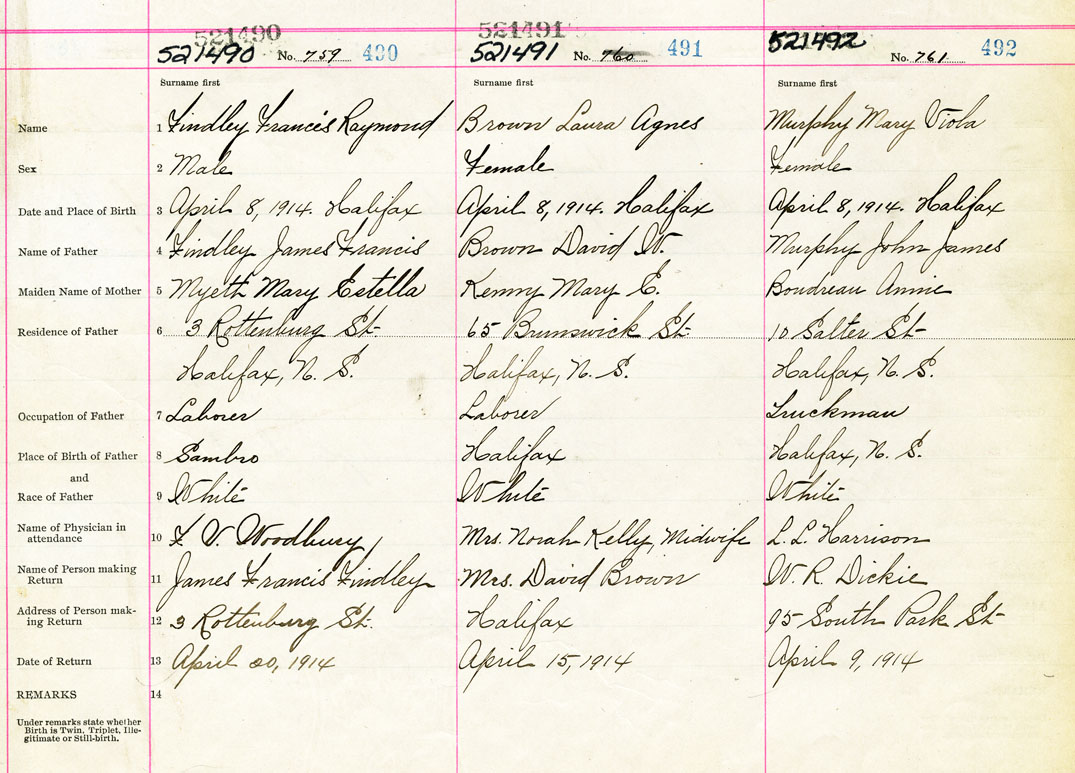 521490 521491
521490 No. 759 490 521491 No. 760 491 521492 No. 761 492
Surname first Surname first Surname first
Name 1 Findley Francis Raymond Brown Laura Agnes Murphy Mary Viola
Sex 2 Male Female Female
Date and Place of Birth 3 April 8, 1914. Halifax April 8, 1914. Halifax April 8, 1914. Halifax
Name of Father 4 Findley James Francis Brown David W. Murphy John James
Maiden Name of Mother 5 Myeth Mary Estella Kenny Mary E. Boudreau Annie
Residence of Father 6 3 Rottenburg St. 65 Brunswick St. 10 Salter St
Halifax, N. S. Halifax, N. S. Halifax, N. S.
Occupation of Father 7 Laborer Laborer Truckman
Place of Birth of Father 8 Sambro Halifax Halifax, N. S.
and
Race of Father 9 White White White
Name of Physician in
attendance 10 F. V. Woodbury Mrs. Norah Kelly, Midwife L. L. Harrison
Name of Person making
Return 11 James Francis Findley Mrs. David Brown W. R. Dickie
Address of Person mak-
ing Return 12 3 Rottenburg St. Halifax 95 South Park St
Date of Return 13 April 20, 1914 April 15, 1914 April 9, 1914
REMARKS 14
Under remarks state whether
Birth is Twin, Triplet, Ille-
gitimate or Still-birth.